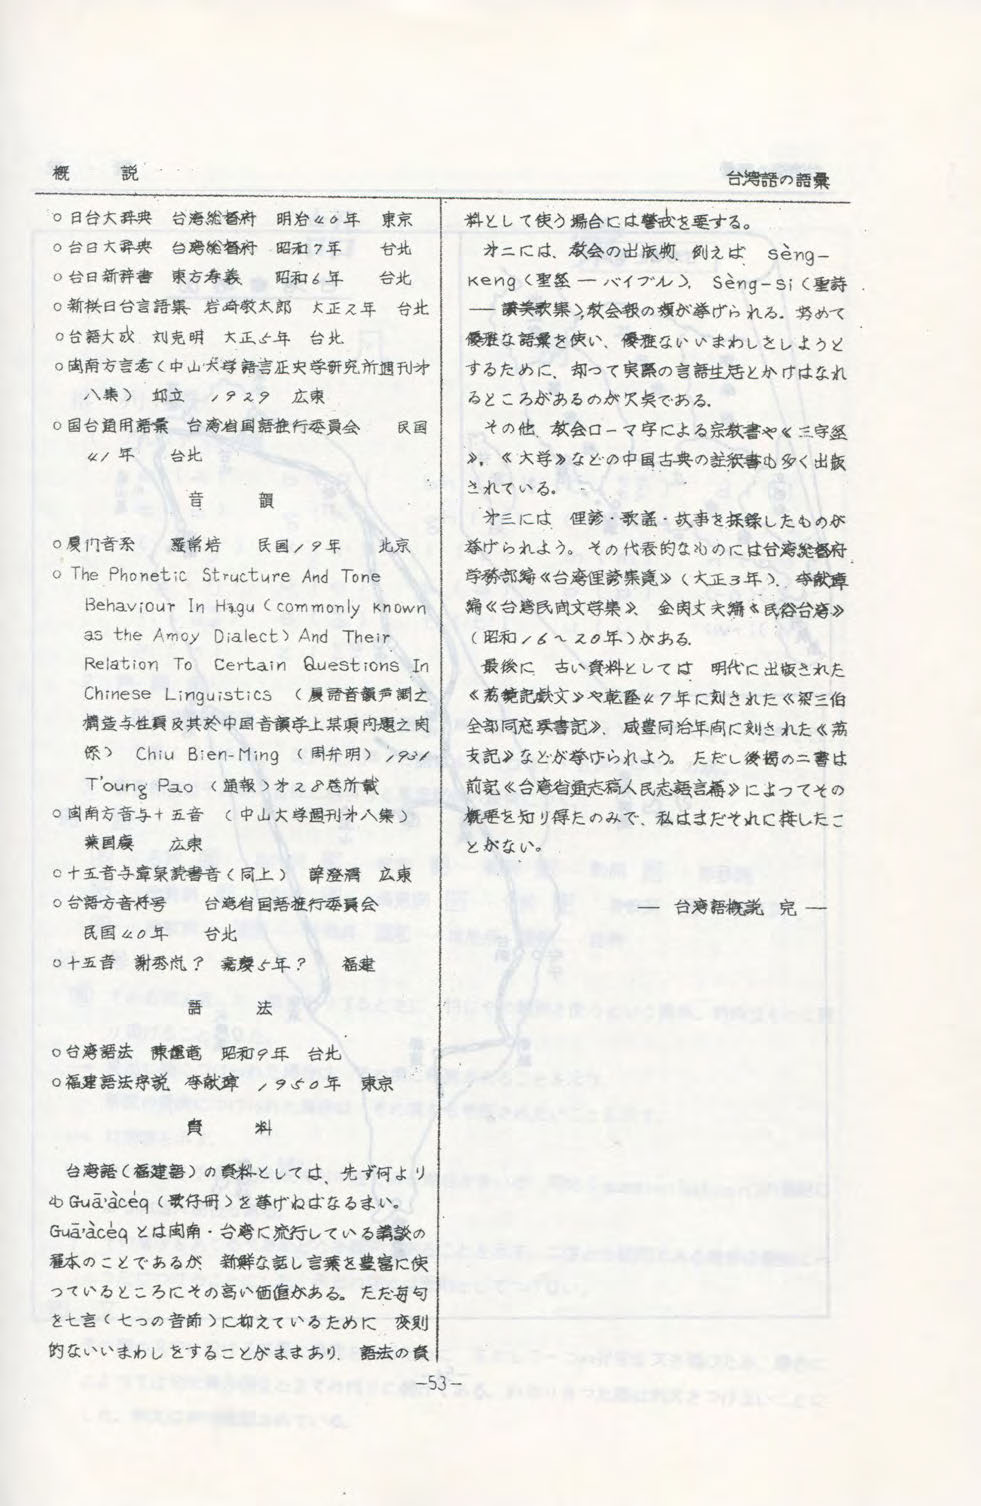 概　説
台湾語の語彙
○日台大辞典　台湾総督府　明治40年　東京
○台日大辞典　台湾総督府　昭和7年　台北
○台日新辞書　東方孝義　昭和6年　台北
○新撰日台言語集　岩崎敬太郎　大正2年　台北
○台語大成　刘克明　大正5年　台北
○閩南方言考(中山大学語言历史学研究所週刊才
八集)　邱立　1929　広東
○国台通用語彙　台湾省国語推行委員会　民国
41年　台北
音　韻
○厦门音系　羅常培　民国19年　北京
○The Phonetic Structure And Tone
Behaviour In Hagu (commonly known
as the Amoy Dialect) And Their
Relation To Certain Questions In
Chinese Linguistics (厦語音韻声調之
構造与性質及其於中国音韻学上某項内題之関
係) Chiu Bien-Ming (周弁明) 1931
T'oung Pao (通報)才28巻所載
○閩南方音与十五音　(中山大学週刊才八集)
葉国慶　広東
○十五音与漳泉読書音(同上)　薛澄清　広東
○台語方音符号　台湾省国語推行委員会
民国40年　台北
○十五音　謝秀嵐?　嘉慶5年?　福建
語　法
○台湾語法　陳輝竜　昭和9年　台北
○福建語法序説　李献璋　1950年　東京
資　料
台湾語(福建語)の資料としては、先ず何より
も Guā·àcéq (歌仔冊)を挙げねばなるまい。
Guā·àcéq とは閩南・台湾に流行している講談の
種本のことであるが、新鮮な話し言葉を豊富に使
っているところにその高い価値がある。ただ毎句
を七言(七つの音節)に抑えているために、変則
的ないいまわしをすることがままあり、語法の資
料として使う場合には警戒を要する。
才二には、教会の出版物、例えば、Sèng-
Keng (聖〓 ― バイブル), Sèng-si (聖詩
― 讃美歌集),教会報の類が挙げられる。努めて
優雅な語彙を使い、優雅ないいまわしをしようと
するために、却って実際の言語生活とかけはなれ
るところがあるのが欠点である。
その他、教会ローマ字による宗教書や《三字経
》,《大学》などの中国古典の註釈書も多く出版
されている。
才三には、俚諺・歌謡・故事を採録したものが
挙げられよう。その代表的なものには台湾総督府
学務部編《台湾俚諺集覧》(大正3年),李献璋
編《台湾民间文学集》,金関丈夫編《民俗台湾》
(昭和16～20年)がある。
最後に、古い資料としては、明代に出版された
《荔鏡記戯文》や乾隆47年に刻された《梁三伯
全部同窓琴書記》、咸豊同治年间に刻された《荔
支記》などが挙げられよう。ただし後掲の二書は
前記《台湾省通志稿人民志語言篇》によってその
概要を知り得たのみで、私はまだそれに接したこ
とがない。
― 台湾語概説 完 ―
-53-